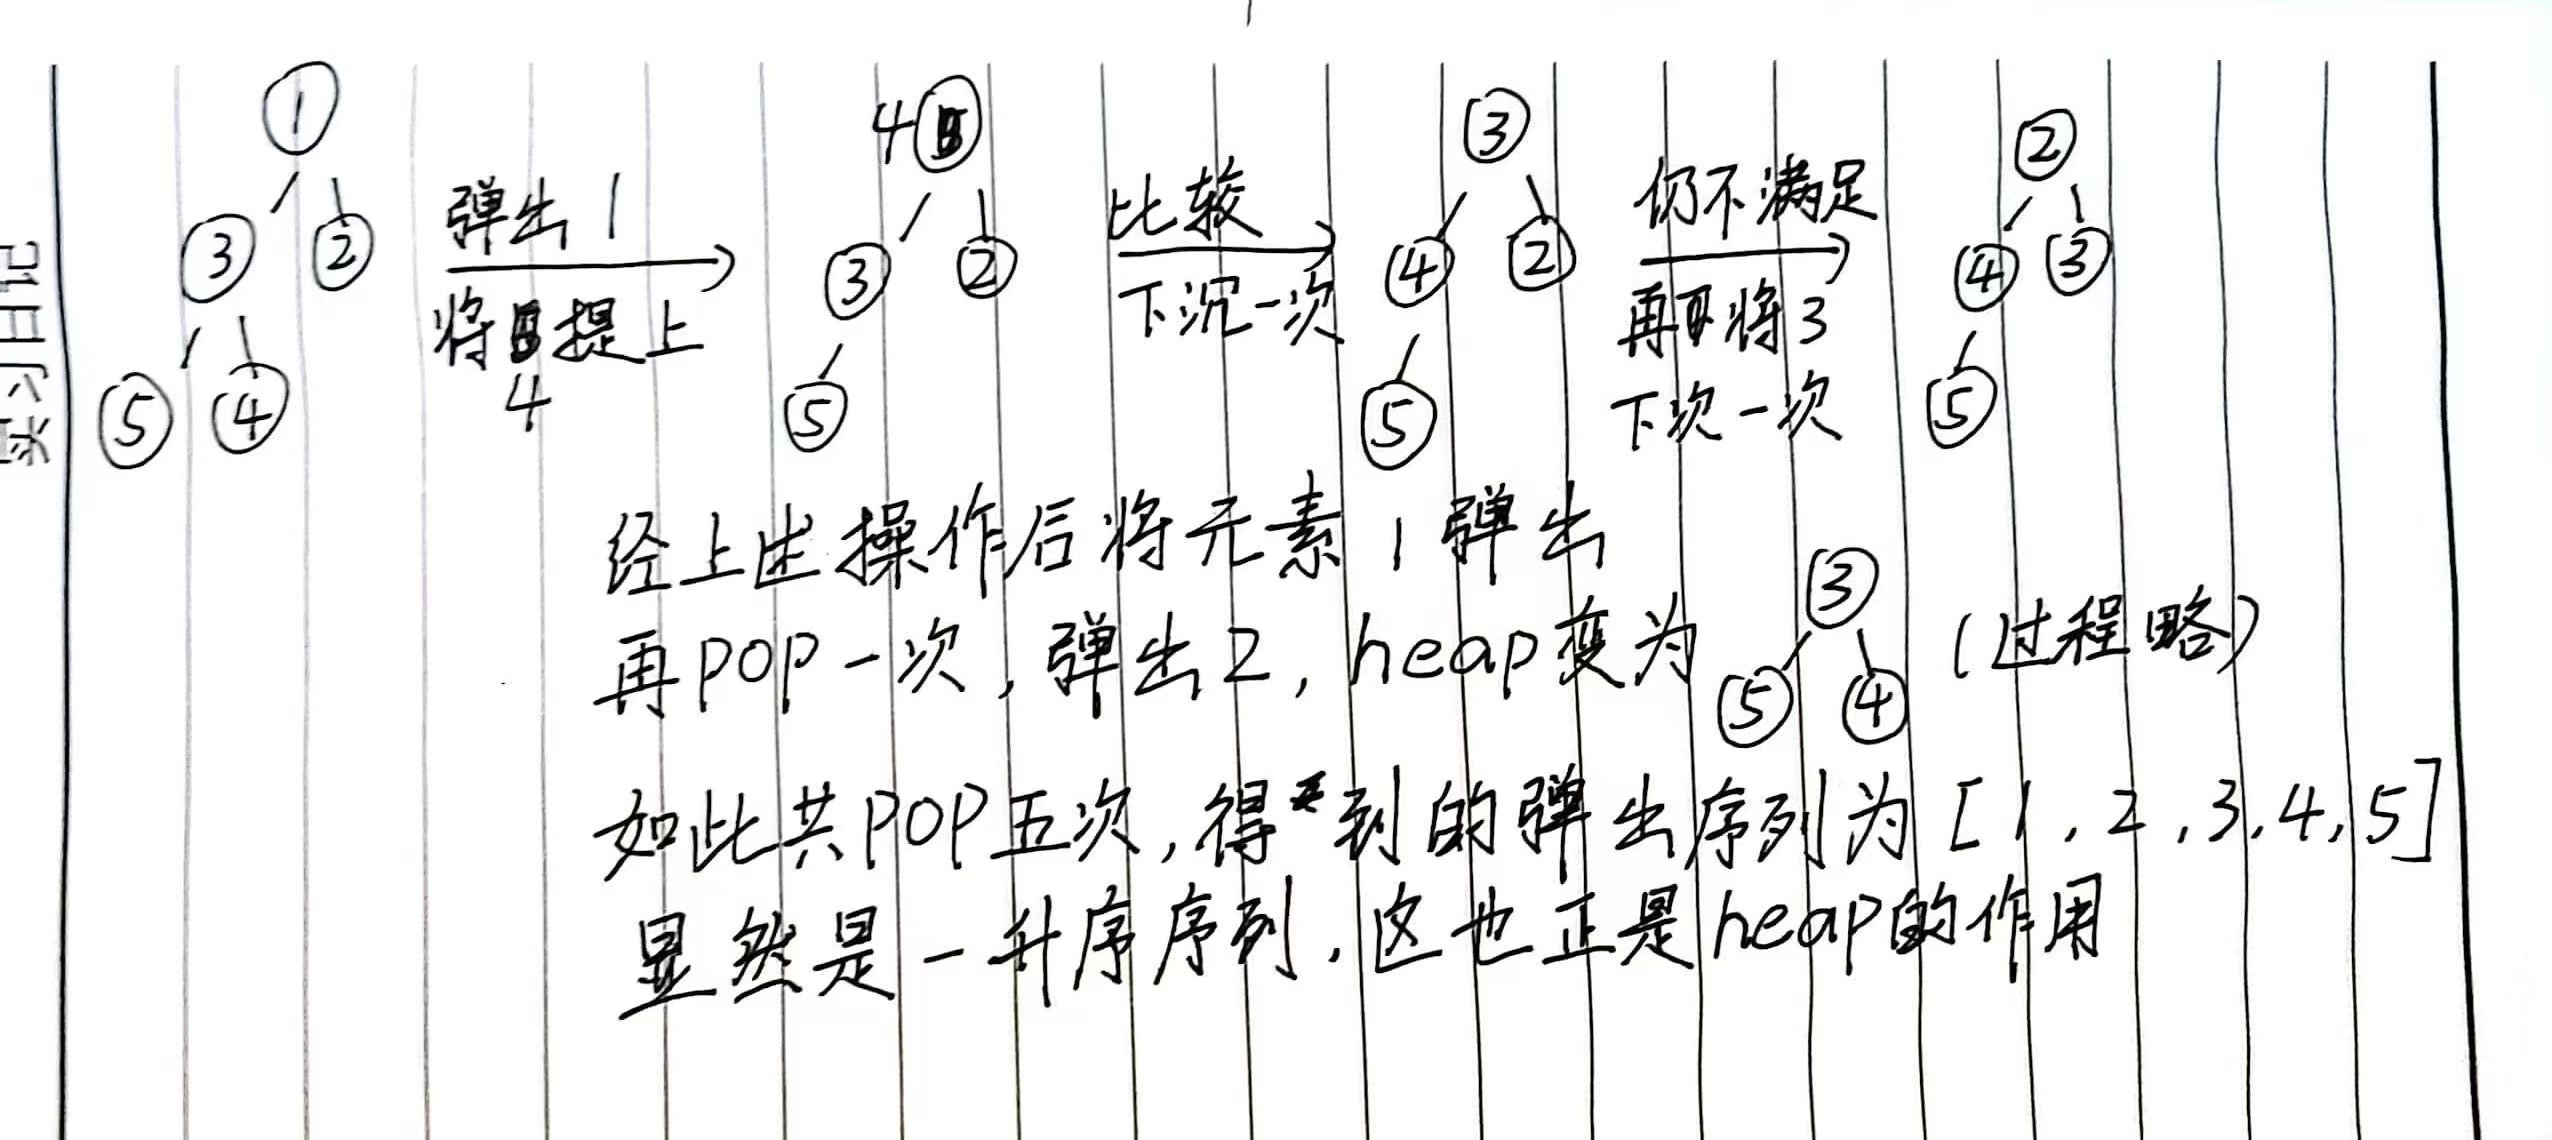 实习日记
1
3 2
5 4
弹出1
将提上
4
4
3 2
5
比较
下沉一次
3
4 2
5
仍不满足
再将3
下次一次
2
4 3
5
经上述操作后将元素1弹出
再POP一次,弹出2,heap变为 3 5 4 (过程略)
如此共POP五次,得到的弹出序列为[1,2,3,4,5]
显然是一升序序列,这也正是heap的作用